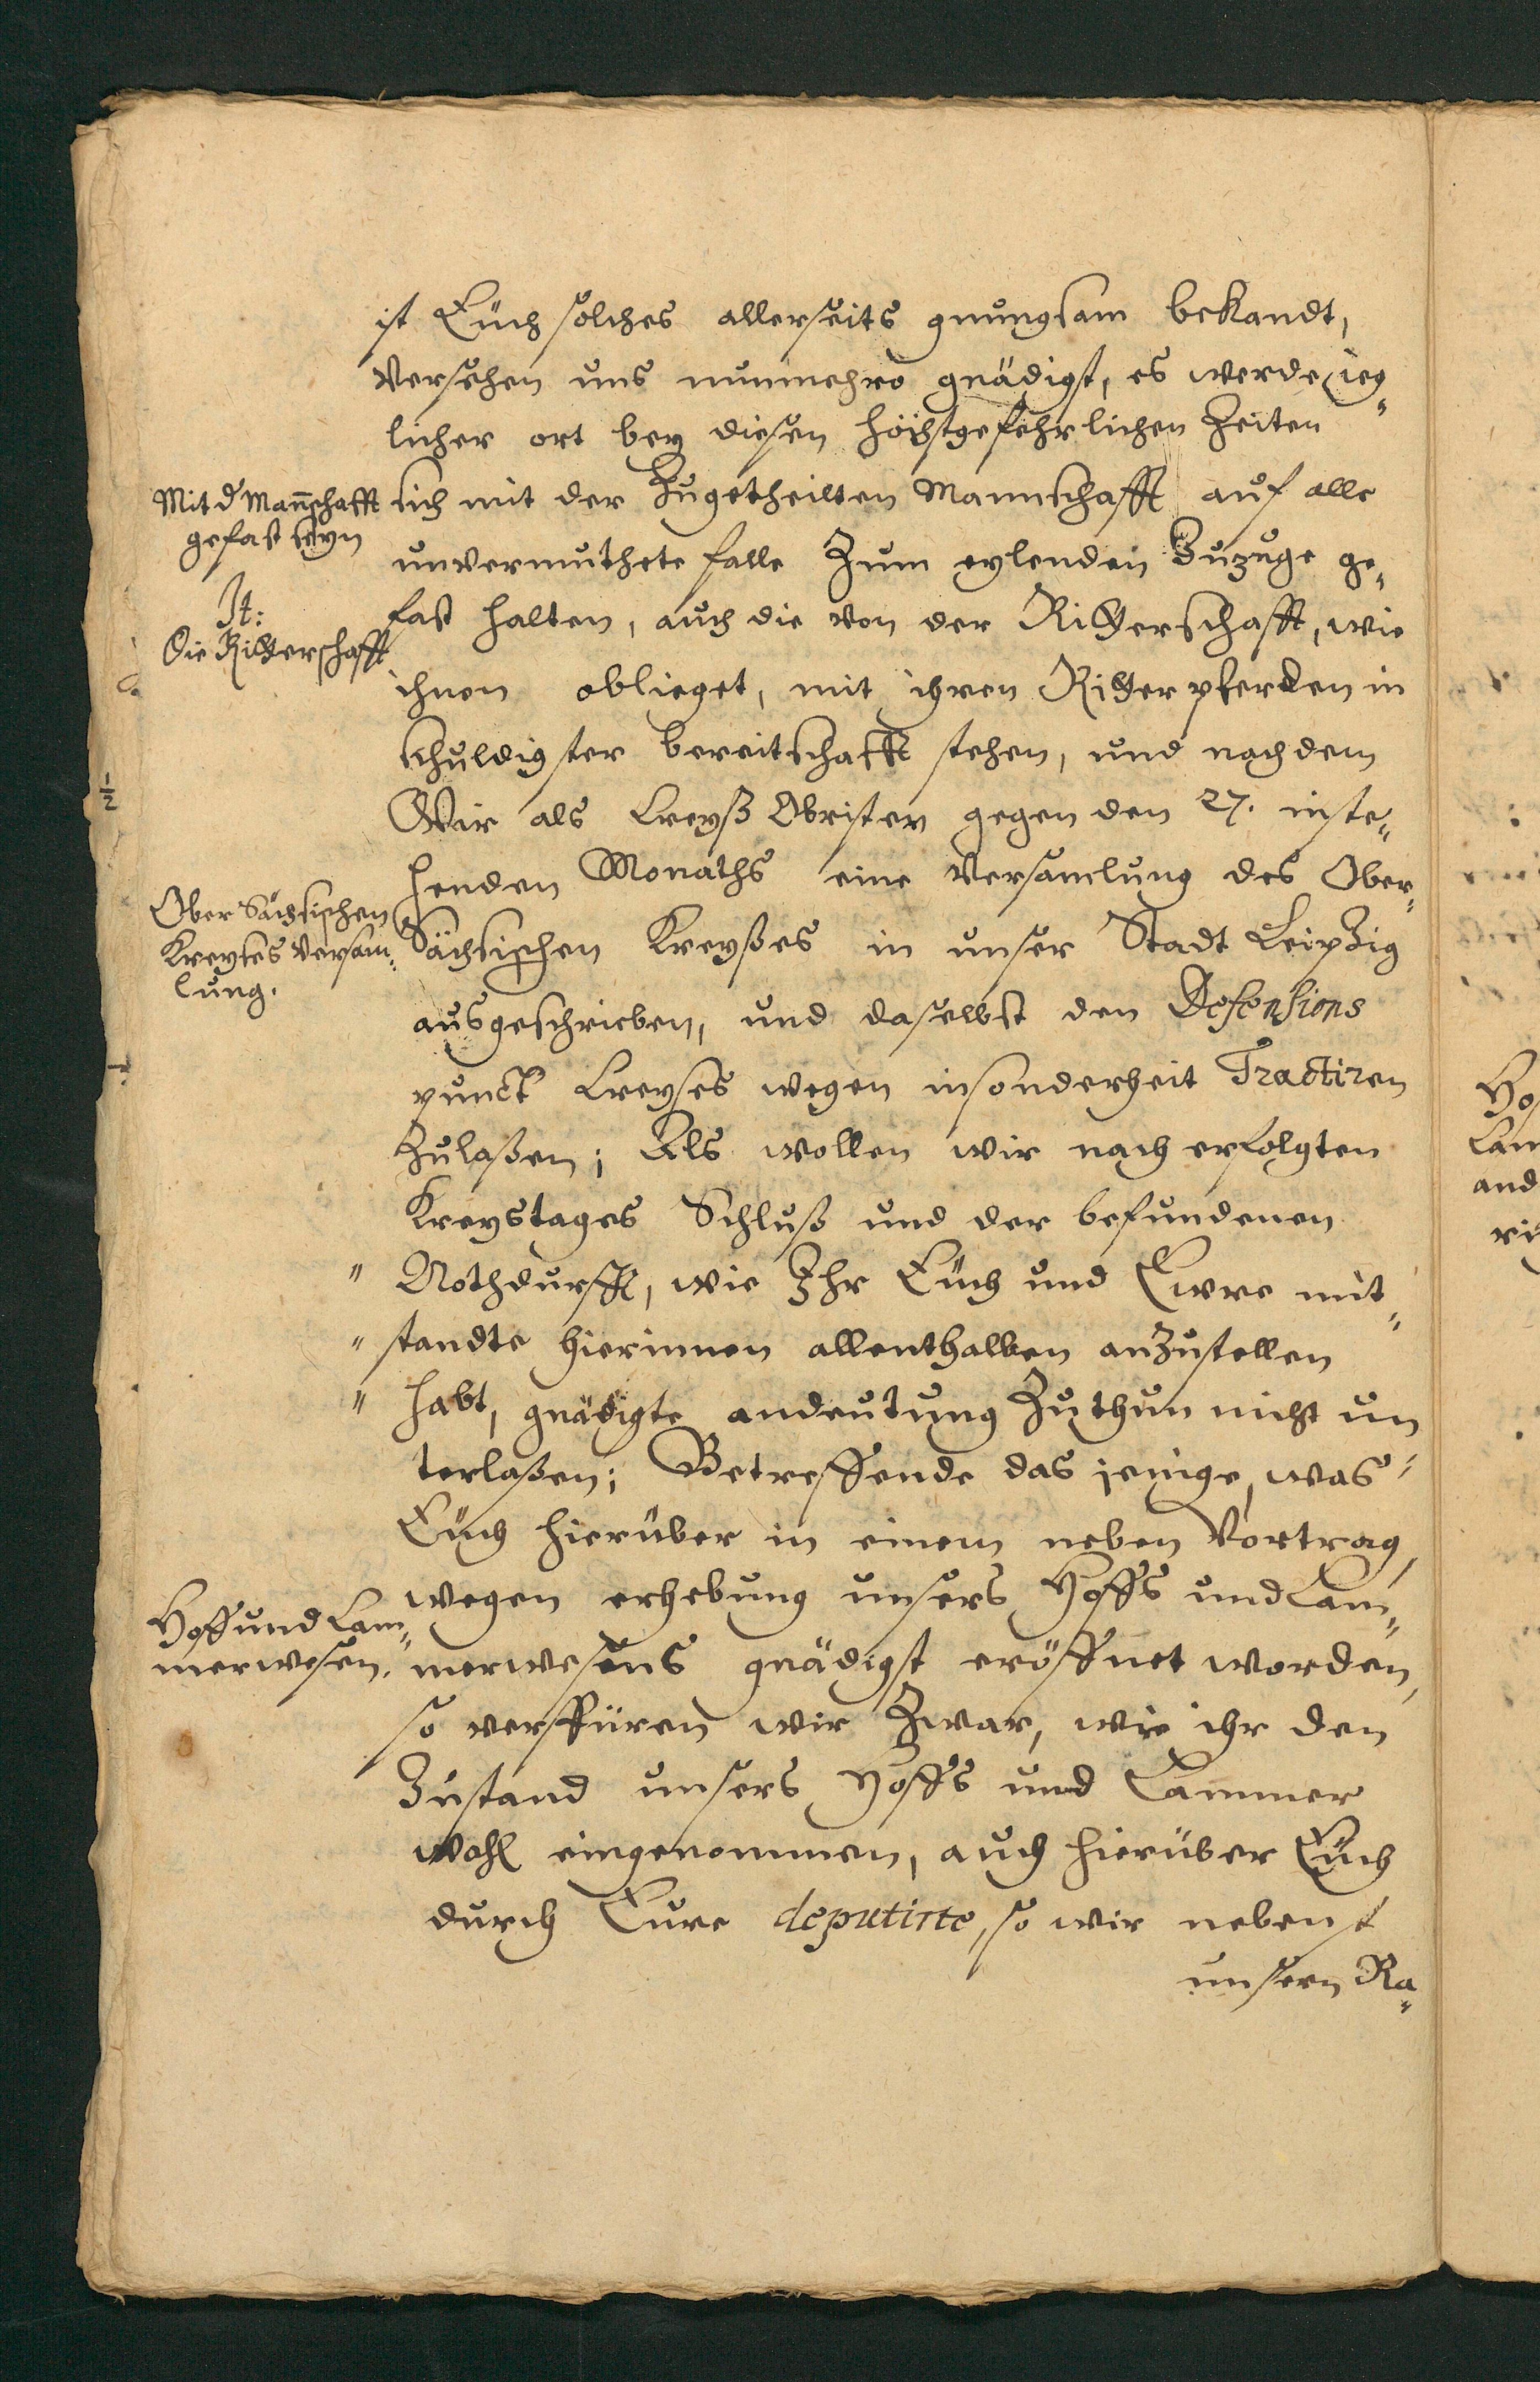 ist Euch solches allerseits gnungsam bekandt,
versehen uns nunmehro gnädigst, es werde ieg„
licher ort bey diesen höchstgefehrlichen Zeiten
Mit d Mañschafft
gefast seyn
sich mit der Zugetheilten Mannschafft auf alle
unvermuthete falle Zum eylenden Zuzuge ge„
It:
Die Ritterschafft
fast halten, auch die von der Ritterschafft, wie
ihnen oblieget, mit ihren Ritterpferden in
schuldigster bereitschafft stehen, und nachdem
Wir als Creyß Obrister gegen den 27. inste„
henden Monaths eine Versamlung des Ober„
Ober Sächsischen
Kreyses Versam„
lung.
Sächsischen Kreyßes in unser Stadt Leipzig
ausgeschrieben, und daselbst den Defensions
punct Creyses wegen insonderheit Tractiren
Zulaßen; Als wollen wir nach erfolgten
Kreystages Schluß und der befundenen
" Nothdurfft, wie Ihr Euch und Ewre mit„
" standte hierinnen allenthalben anzustellen
" habt, gnädigte andeutung Zuthun nicht un
terlaßen; Betreffende das jenige, was
Euch hierüber in einem neben Vortrag,
wegen erhebung unsers Hoffs und Cam„
Hoff und Cam„
merwesen.
merwesens gnädigst eröffnet worden,
so verspüren wir Zwar, wie ihr den
Zustand unsers Hoffs und Cammer
wohl eingenommen, auch hierüber Euch
durch Eure deputirte, so wir nebenst
unsern Ra„